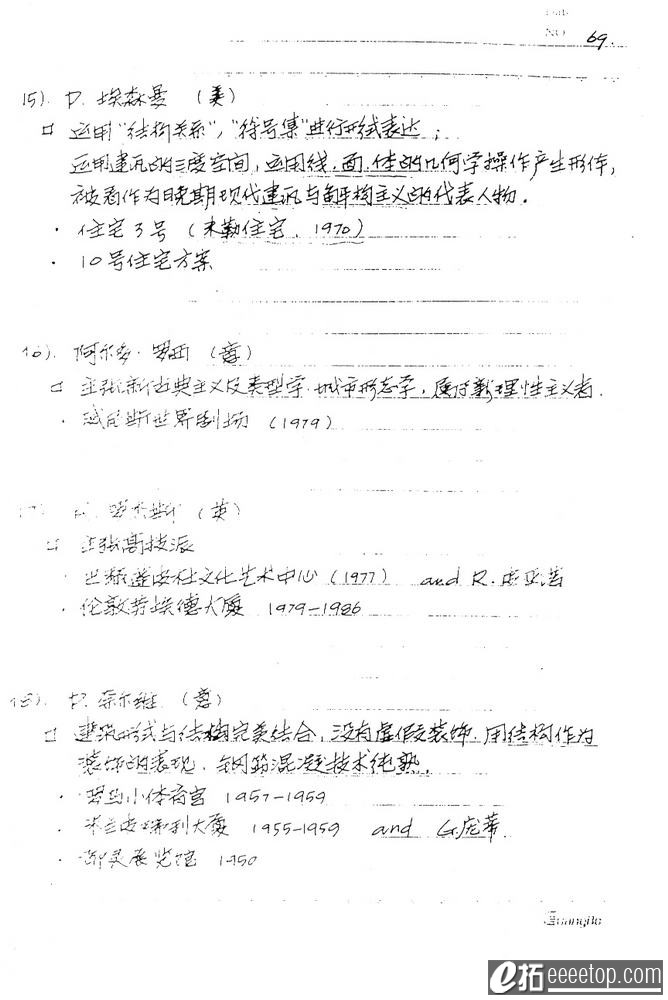 NO 69.
15). P. 埃森曼 (美)
□ 运用"结构关系","符号集"进行形式表达;
运用建筑的三度空间,运用线.面.体的几何学操作产生形体,
被看作为晚期现代建筑与解构主义的代表人物.
· 住宅3号 (米勒住宅. 1970)
· 10号住宅方案
16). 阿尔多·罗西 (意)
□ 主张新古典主义及类型学.城市形态学,属于新理性主义者.
· 威尼斯世界剧场 (1979)
17). 罗杰斯 (英)
□ 主张高技派
· 巴黎蓬皮杜文化艺术中心 (1977) and R.皮亚诺
· 伦敦劳埃德大厦 1979-1986
18). P. 奈尔维 (意)
□ 建筑形式与结构完美结合,没有虚假装饰.用结构作为
装饰的表现.钢筋混凝技术纯熟.
· 罗马小体育宫 1957-1959
· 米兰皮瑞利大厦 1955-1959 and G.庞蒂
· 都灵展览馆 1950
Guangbo
e拓 eeeetop.com